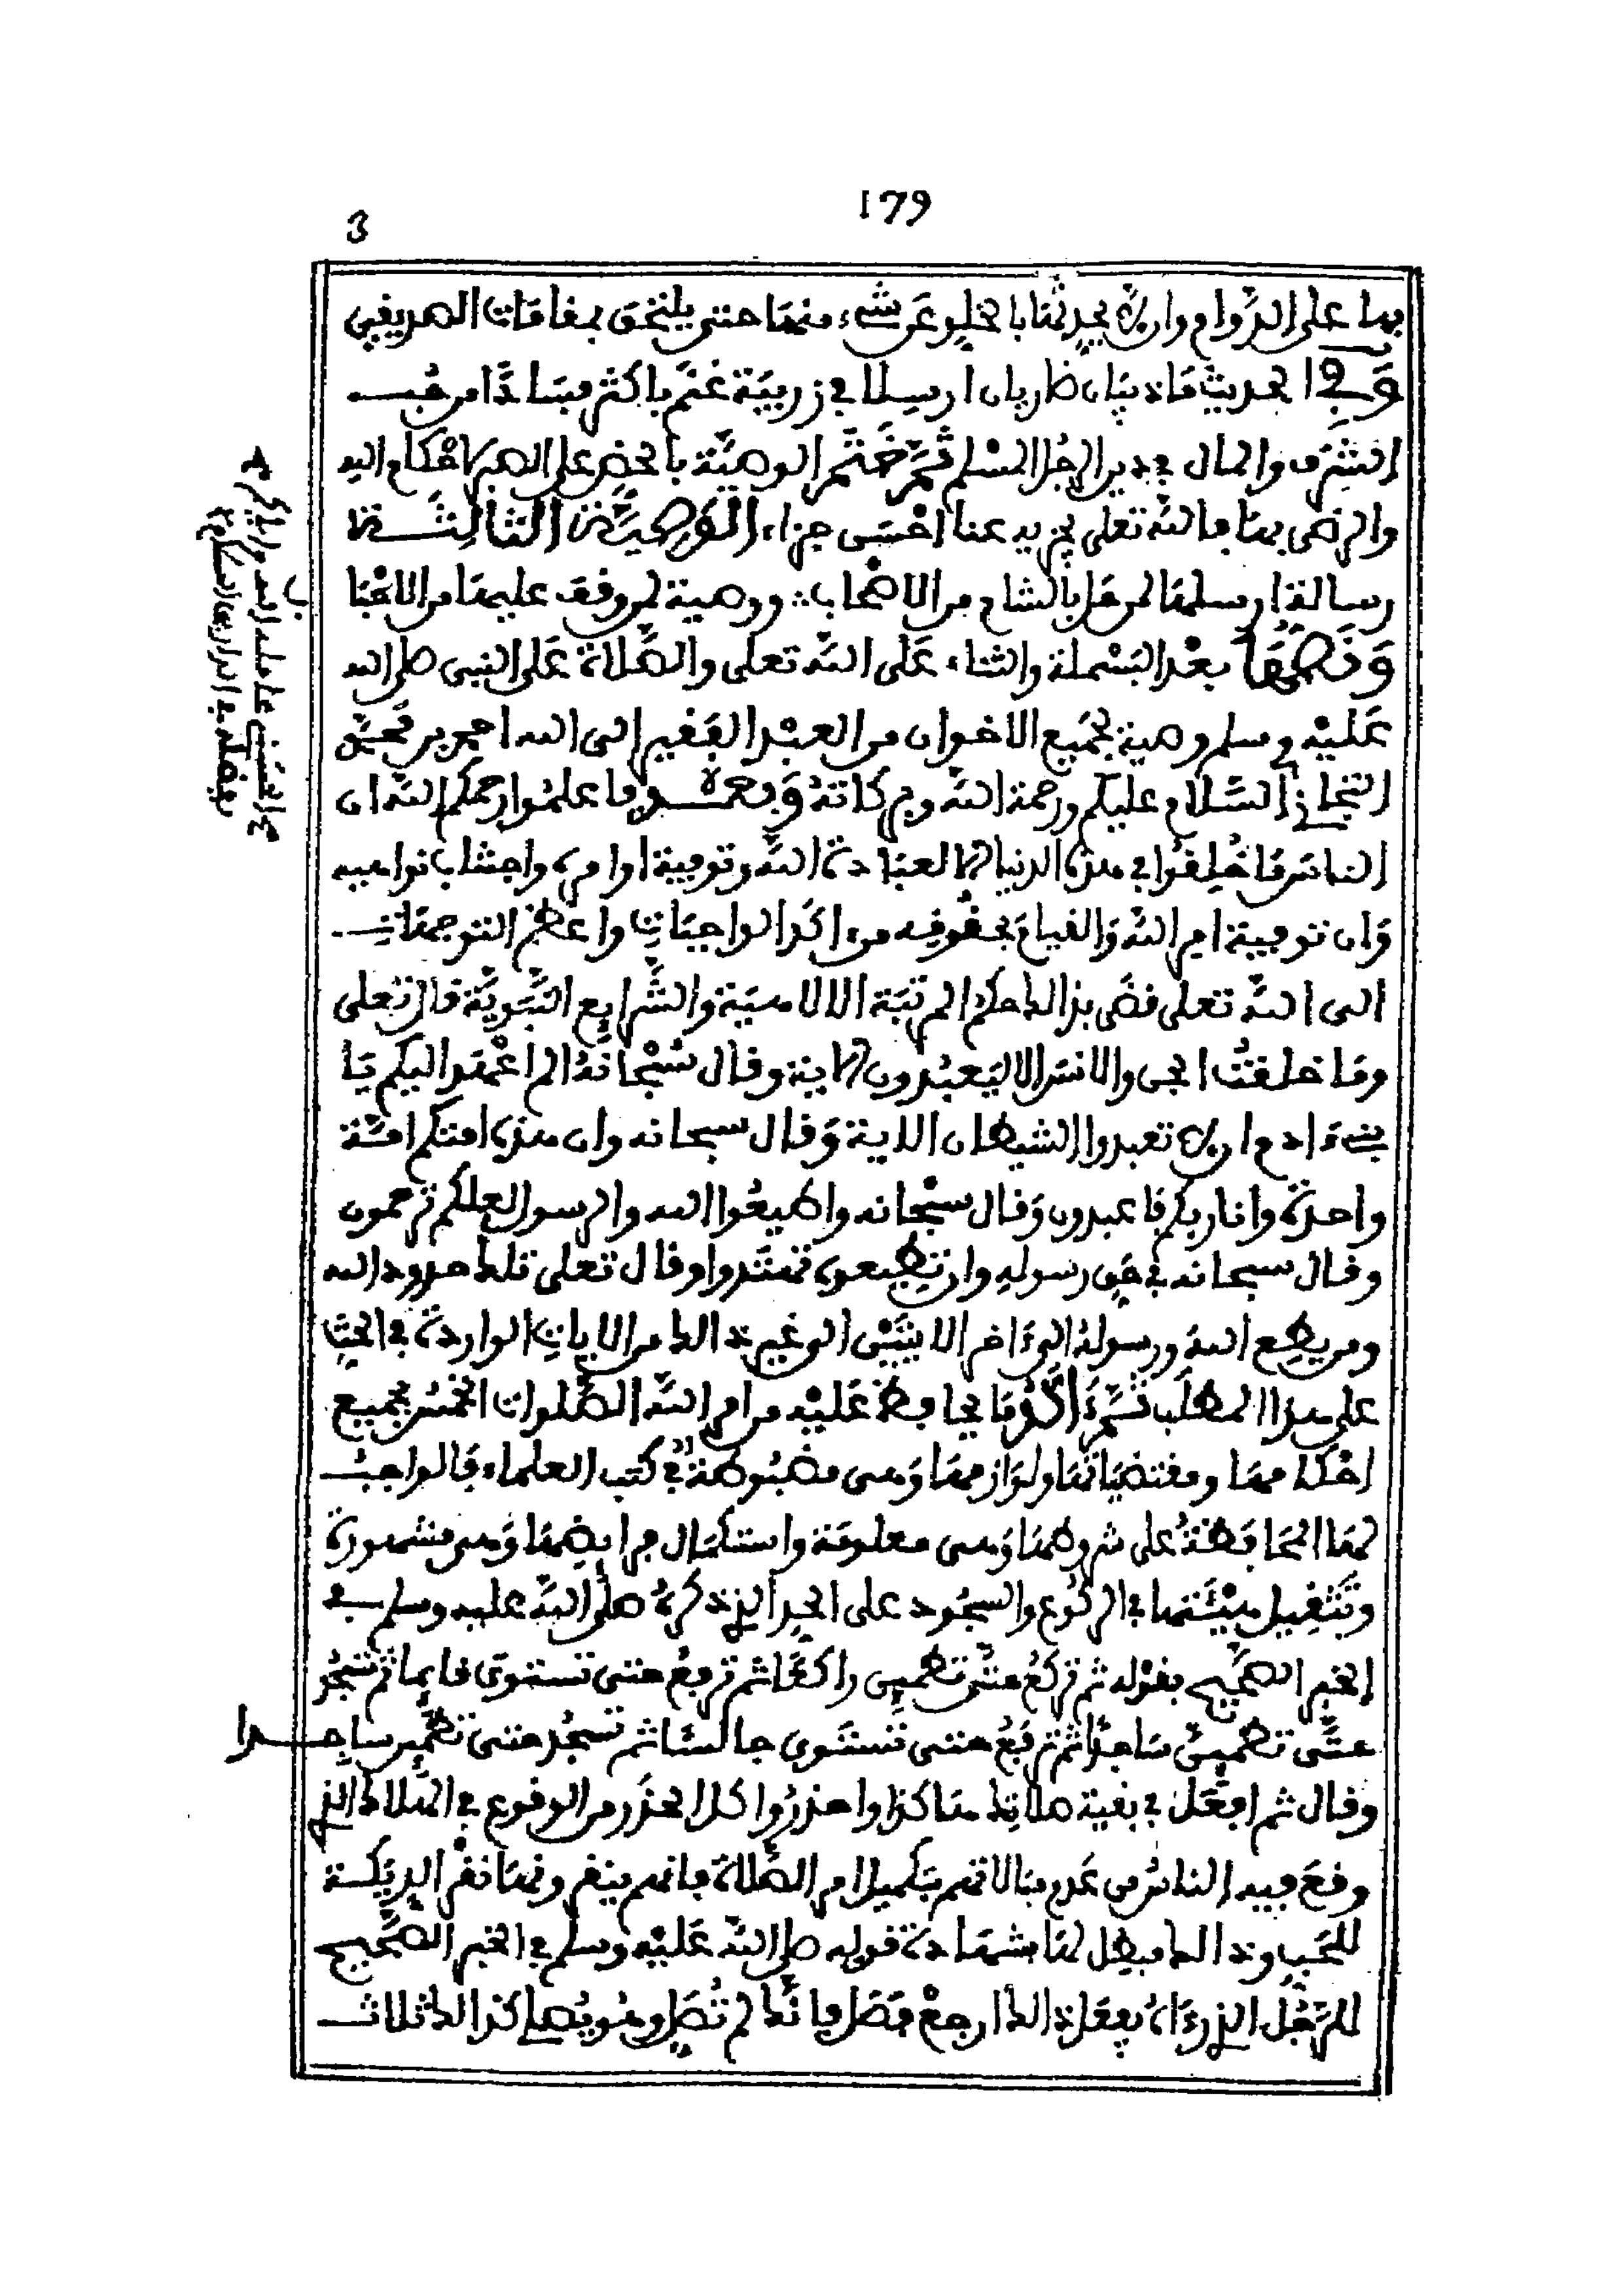 179
3
بها على الدوام وان لا يحدثها بالخلو عن شيء منها حتى يلتحق بمقامات الصديقين
وفي الحديث ما ذيبان ضاريان ارسلا في زريبة غنم باكثر فسادا من حب
الشرف والمال في دين الرجل المسلم ثم ختم الوصية بالحض على الصبر لاحكام الله
والرضى بها فالله تعلى يجزيه عنا احسن جزاء الوصية الثالثة
رسالة ارسلها لمن هل بالشام من الاصحاب ووصية لمن وقف عليها من الاحبا
ونصها بعد البسملة والثناء على الله تعلى والصلاة على النبي صلى الله
عليه وسلم وصية لجميع الاخوان من العبد الفقير الى الله احمد بن محمد
التجاني السلام عليكم ورحمة الله وبركاته وبعد فاعلموا رحمكم الله ان
الناس ما خلقوا في هذه الدنيا الا لعبادة الله وتوفية اوامره واجتناب نواهيه
وان توفية امر الله والقيام بحقوقه من اكد الواجبات واعظم التوجهات
الى الله تعلى قضى بذالك حكم المرتبة الالاهية والشرايع النبوية قال تعلى
وما خلقت الجن والانس الا ليعبدون الاية وقال سبحانه الم اعهد اليكم يا
بني ءادم ان لا تعبدوا الشيطان الاية وقال سبحانه وان هذه امتكم امة
واحدة وانا ربكم فاعبدون وقال سبحانه واطيعوا الله والرسول لعلكم ترحمون
وقال سبحانه في حق رسوله وان تطيعوه تهتدوا وقال تعلى تلك حدود الله
ومن يطع الله ورسوله الى ءاخر الايتين الى غير ذالك من الايات الواردة في الحث
على هذا المطلب ثم ءاكد ما يحافظ عليه من امر الله الصلوات الخمس بجميع
احكامها ومقتضياتها ولوازمها وهي مضبوطة في كتب العلماء فالواجب
لها المحافظة على شروطها وهي معلومة واستكمال فرايضها وهي مشهورة
وتثقيل هيئتها في الركوع والسجود على الحد الذي ذكره صلى الله عليه وسلم في
الخبر الصحيح بقوله ثم تركع حتى تطمين راكعا ثم ترفع حتى تستوي قايما ثم تسجد
حتى تطمين ساجدا ثم ترفع حتى تستوي جالسا ثم تسجد حتى تطمين ساجدا
وقال ثم افعل في بقية صلاتك هاكذا واحذروا كل الحذر من الوقوع في الهلاك الذي
وقع فيه الناس من عدم مبالاتهم بتكميل امر الصلاة فانهم ينقرونها نقر الديكة
للحب وذالك مبطل لها بشهادة قوله صلى الله عليه وسلم في الخبر الصحيح
للرجل الذي رءاه يفعل ذالك ارجع فصل فانك لم تصل وهو يصلي كذالك ثلاث